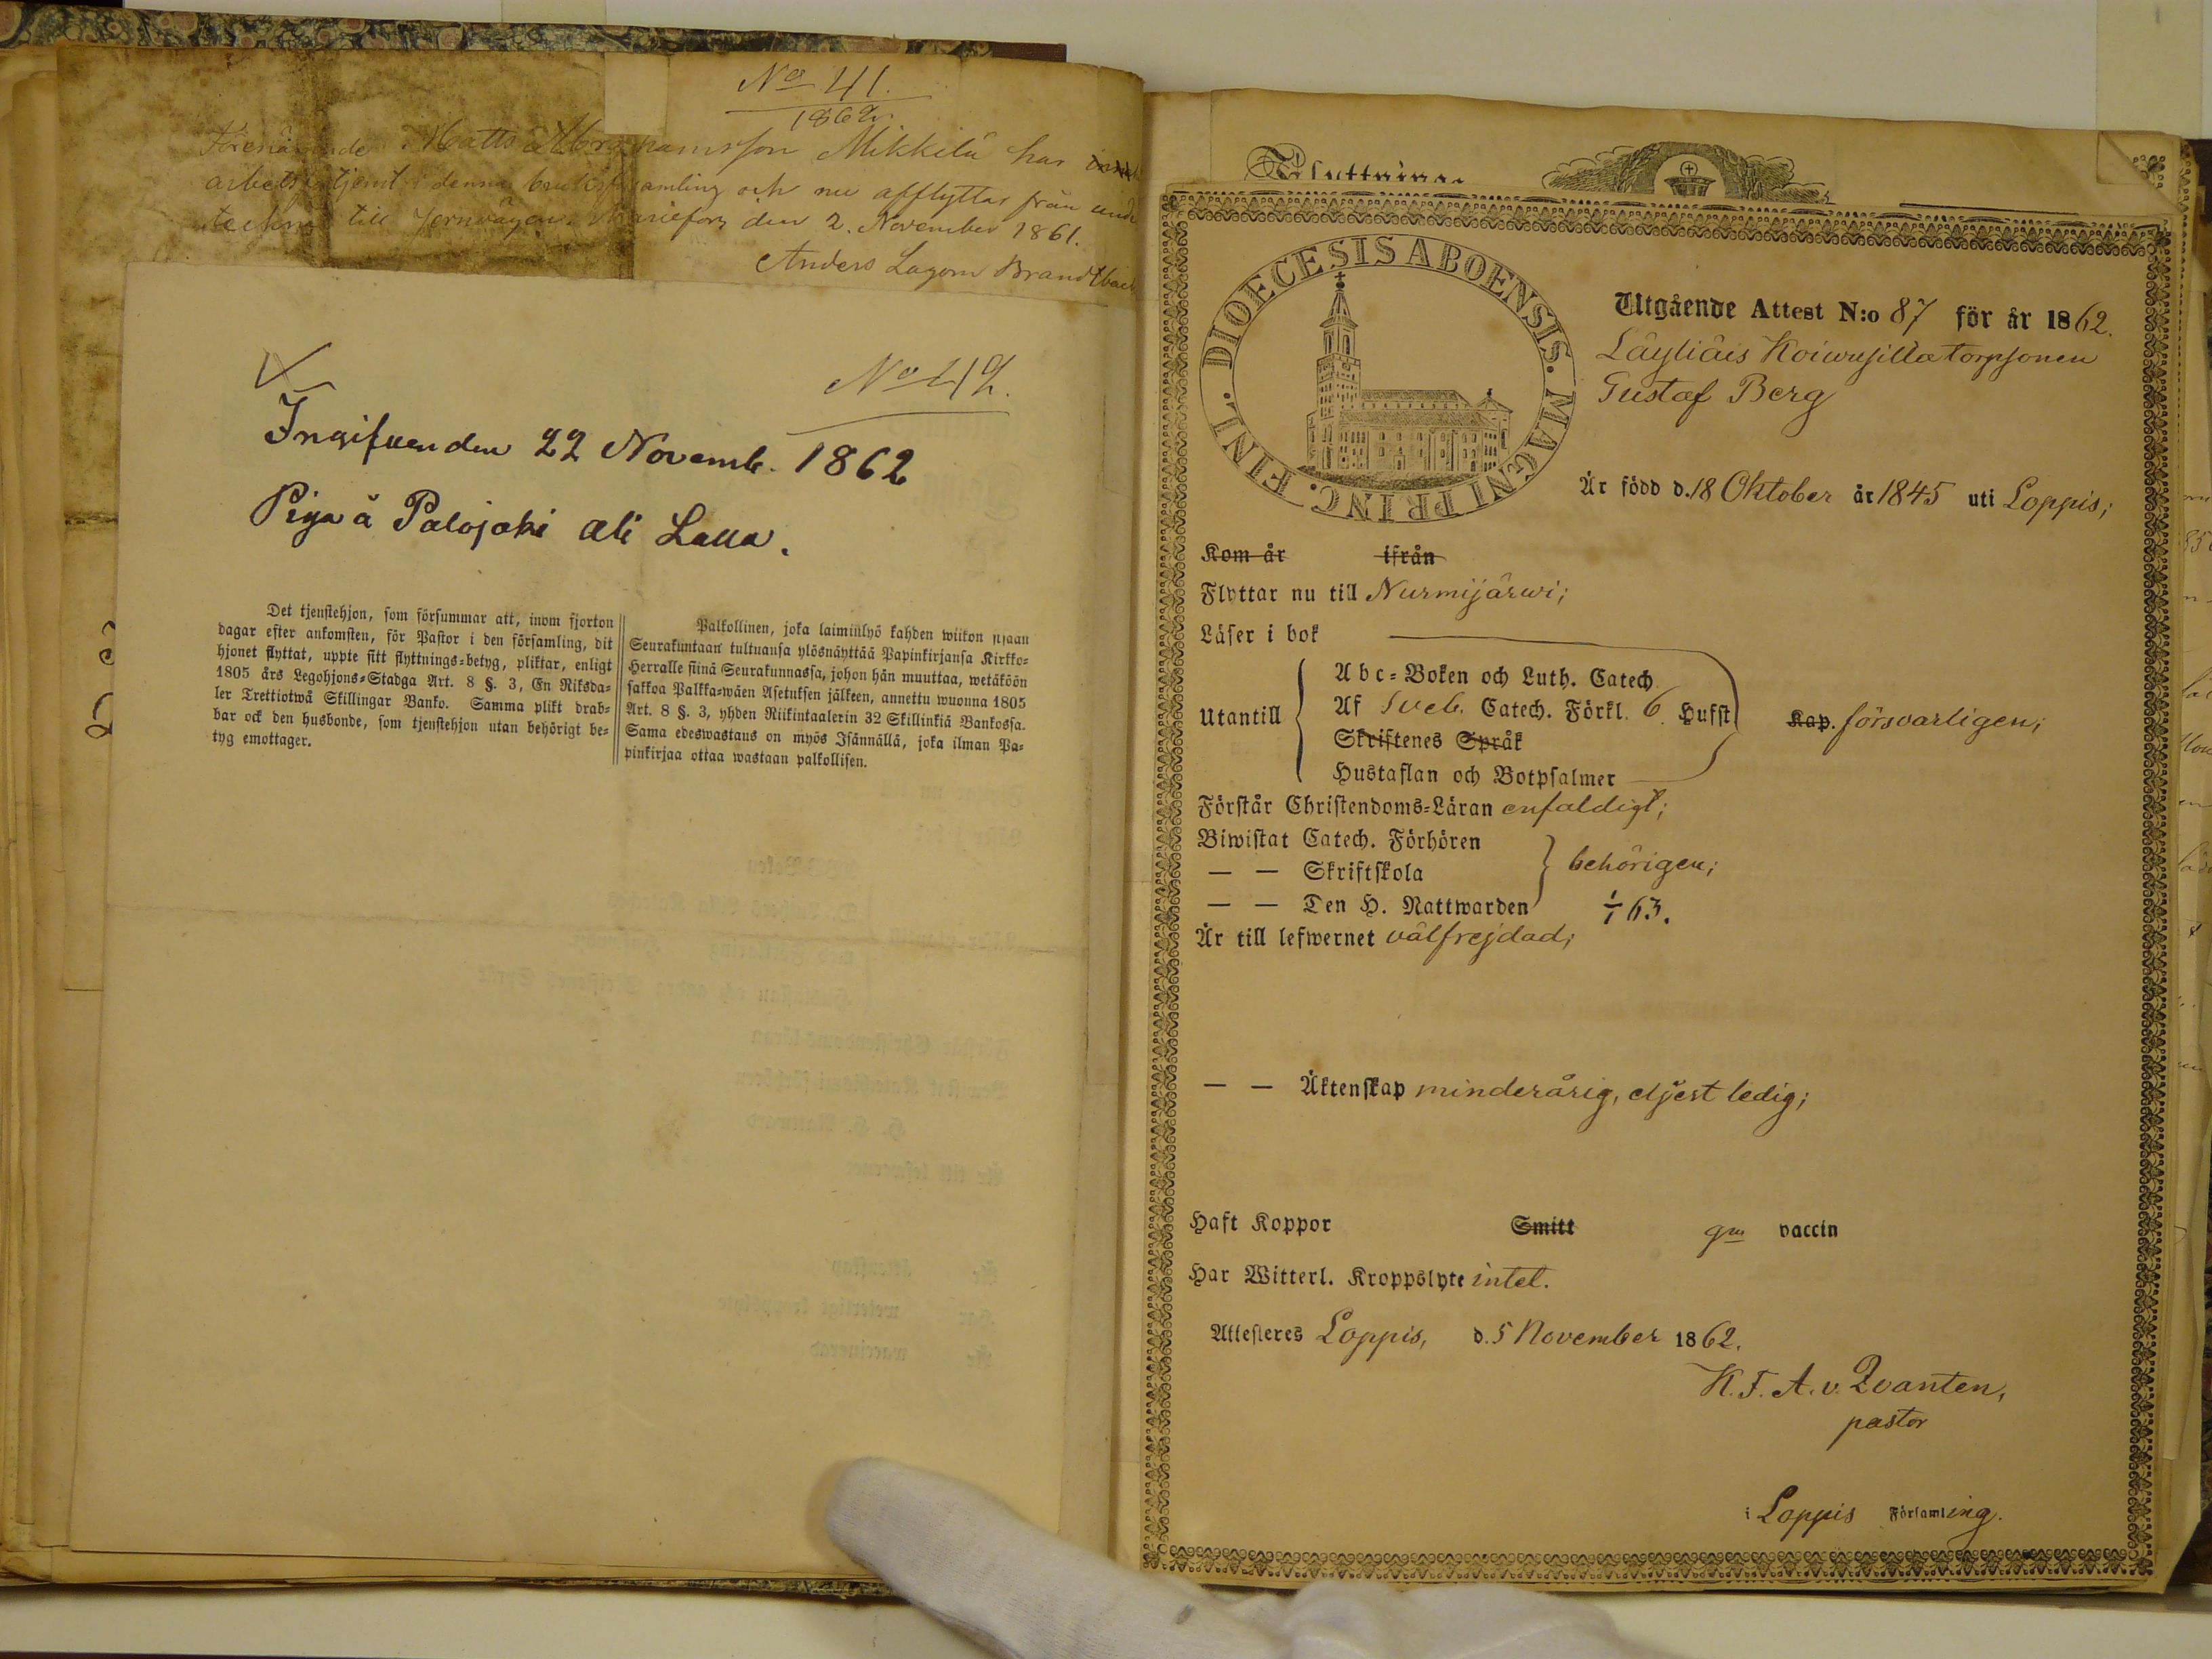 No 41.
1862.
Matts Abrahamsson Mikkilä har
arbets tjent i denna bruksförsamling och nu afflyttar från
till Jernvägen. Mariefors den 2. November 1861.
Anders Lagom Brandtbäck
No 42.
Ingifven den 22 Novemb. 1862
Piga å Palojoki Ali Lalla.
Det tjenstehjon, som försummar att, inom fjorton
dagar efter ankomsten, för Pastor i den församling, dit
hjonet flyttat, uppte sitt flyttnings-betyg, pliktar, enligt
1805 års Legohjons-Stadga Art. 8 §. 3, En Riksda-
ler Trettiotwå Skillingar Banko. Samma plikt drab-
bar ock den husbonde, som tjenstehjon utan behörigt be-
tyg emottager.
Palkollinen, joka laiminlyö kahden wiikon sisään
Seurakuntaan tultuansa ylösnäyttää Papinkirjansa Kirkko-
Herralle siinä Seurakunnassa, johon hän muuttaa, wetäköön
sakkoa Palkka-wäen Asetuksen jälkeen, annettu wuonna 1805
Art. 8 §. 3, yhden Riikintaalerin 32 Skillinkiä Bankossa.
Sama edeswastaus on myös Isännällä, joka ilman Pa-
pinkirjaa ottaa wastaan palkollisen.
Flyttnings
DIOECESIS ABOENSIS. MAGNI PRINC. FINL.
Utgående Attest N:o 87 för år 1862.
Läyliäis Koiwusilla torpsonen
Gustaf Berg
Är född d. 18 Oktober år 1845 uti Loppis;
Kom år ifrån
Flyttar nu till Nurmijärwi;
Läser i bok
Utantill
Abc-Boken och Luth. Catech
Af Sveb. Catech. Förkl. 6 Hufst
Skriftenes Språk
Hustaflan och Botpsalmer
Kap. försvarligen;
Förstår Christendoms-Läran enfaldigt;
Biwistat Catech. Förhören
— — Skriftskola
— — Den H. Nattwarden
behörigen;
1/1 63.
Är till lefwernet välfrejdad;
— — Äktenskap minderårig, eljest ledig;
Haft Koppor Smitt gm vaccin
Har Witterl. Kroppslyte intet.
Attesteres Loppis, d. 5 November 1862.
K. F. A. v. Qvanten,
pastor
i Loppis Församling.